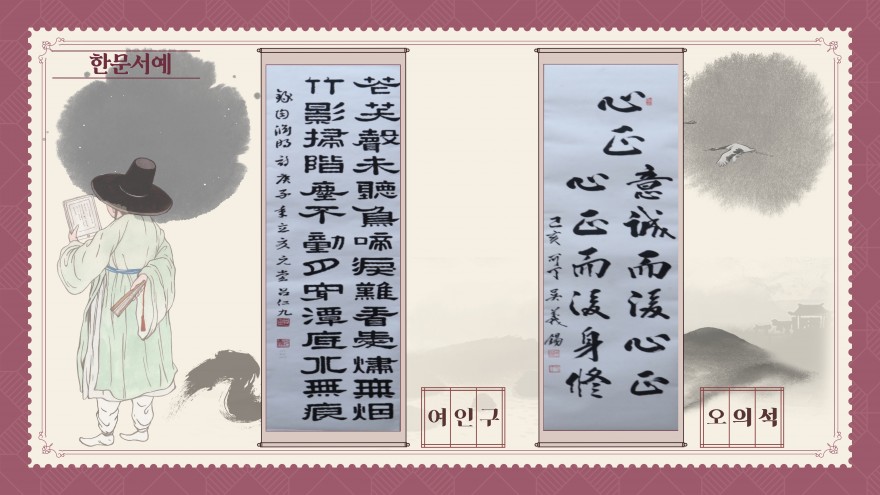 한문서예
花笑聲未聽鳥啼淚難看 無烟
竹影掃階塵不動月穿潭底水無痕
陶淵明詩 庚子 立冬 元堂 呂仁九
여인구
心正
意誠而後心正
心正而後身修
己亥 吳義錫
오의석